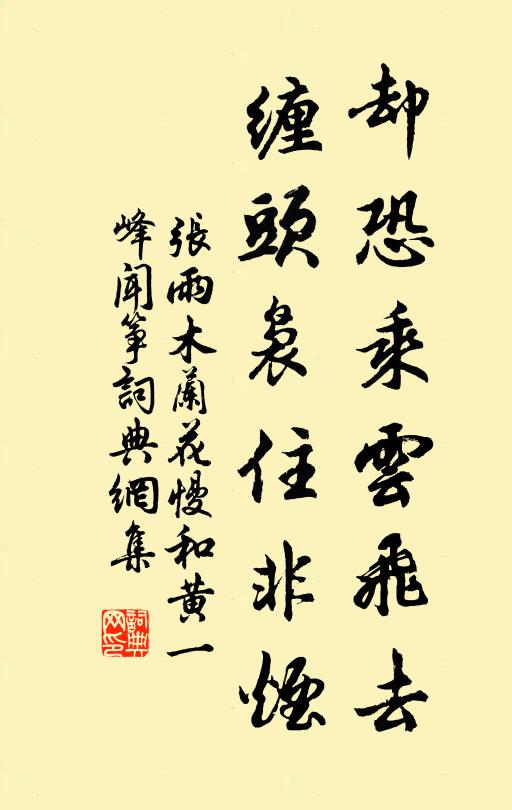 却恐乘雲飛去
纏頭裊住非煙
張雨木蘭花慢和黄一
峰聞筝詞典網集
詞典
网印